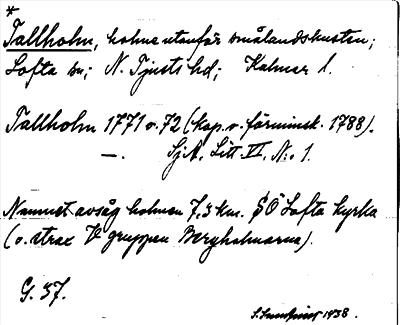 *
Tallholm, holme utanför smålandskusten;
Lofta sn; N. Tjusts hd; Kalmar l.
Tallholm 1771 o. 72 (kop. o. förminsk. 1788).
—. SjA, Litt VI, N:o 1.
Namnet avsåg holmen 7,3 km. SÖ Lofta kyrka
(o. strax V gruppen Bergholmarna).
G. 37.
1938.